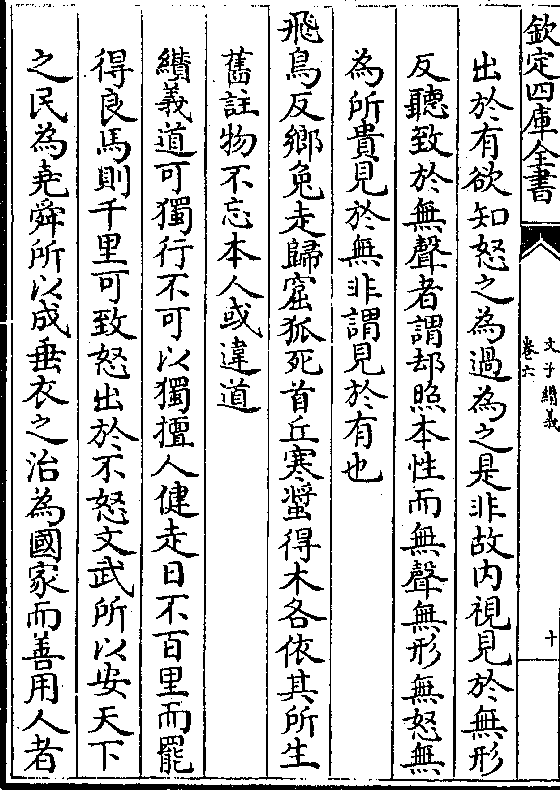 欽定四庫全書
文子纘義
卷六
十
出於有欲知怒之為過為之是非故内視見於無形
反聽致於無聲者謂却照本性而無聲無形無怒無
為所貴見於無非謂見於有也
飛鳥反鄉兔走歸窟狐死首丘寒螿得木各依其所生
舊註物不忘本人或違道
纘義道可獨行不可以獨擅人健走日不百里而罷
得良馬則千里可致怒出於不怒文武所以安天下
之民為堯舜所以成垂衣之治為國家而善用人者